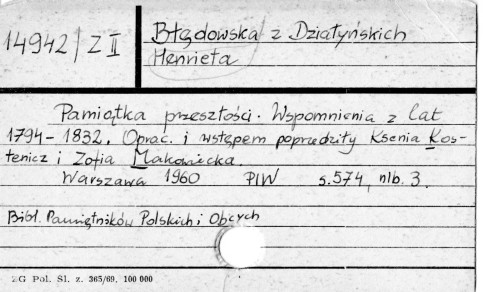 14942/Z II
Błędowska z Działyńskich
Henrieta
Pamiątka przeszłości. Wspomnienia z lat
1794-1832. Oprac. i wstępem poprzedziły Ksenia Kos-
tenicz i Zofia Makowiecka.
Warszawa 1960 PIW s. 574, nlb. 3.
Bibl. Pamiętników Polskich i Obcych
ZG Pol. Śl. z. 365/69. 100 000